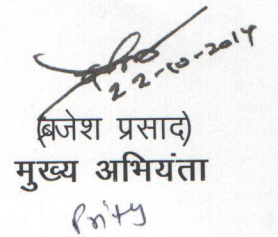 22-10-2014
(बृजेश प्रसाद)
मुख्य अभियंता
Prity